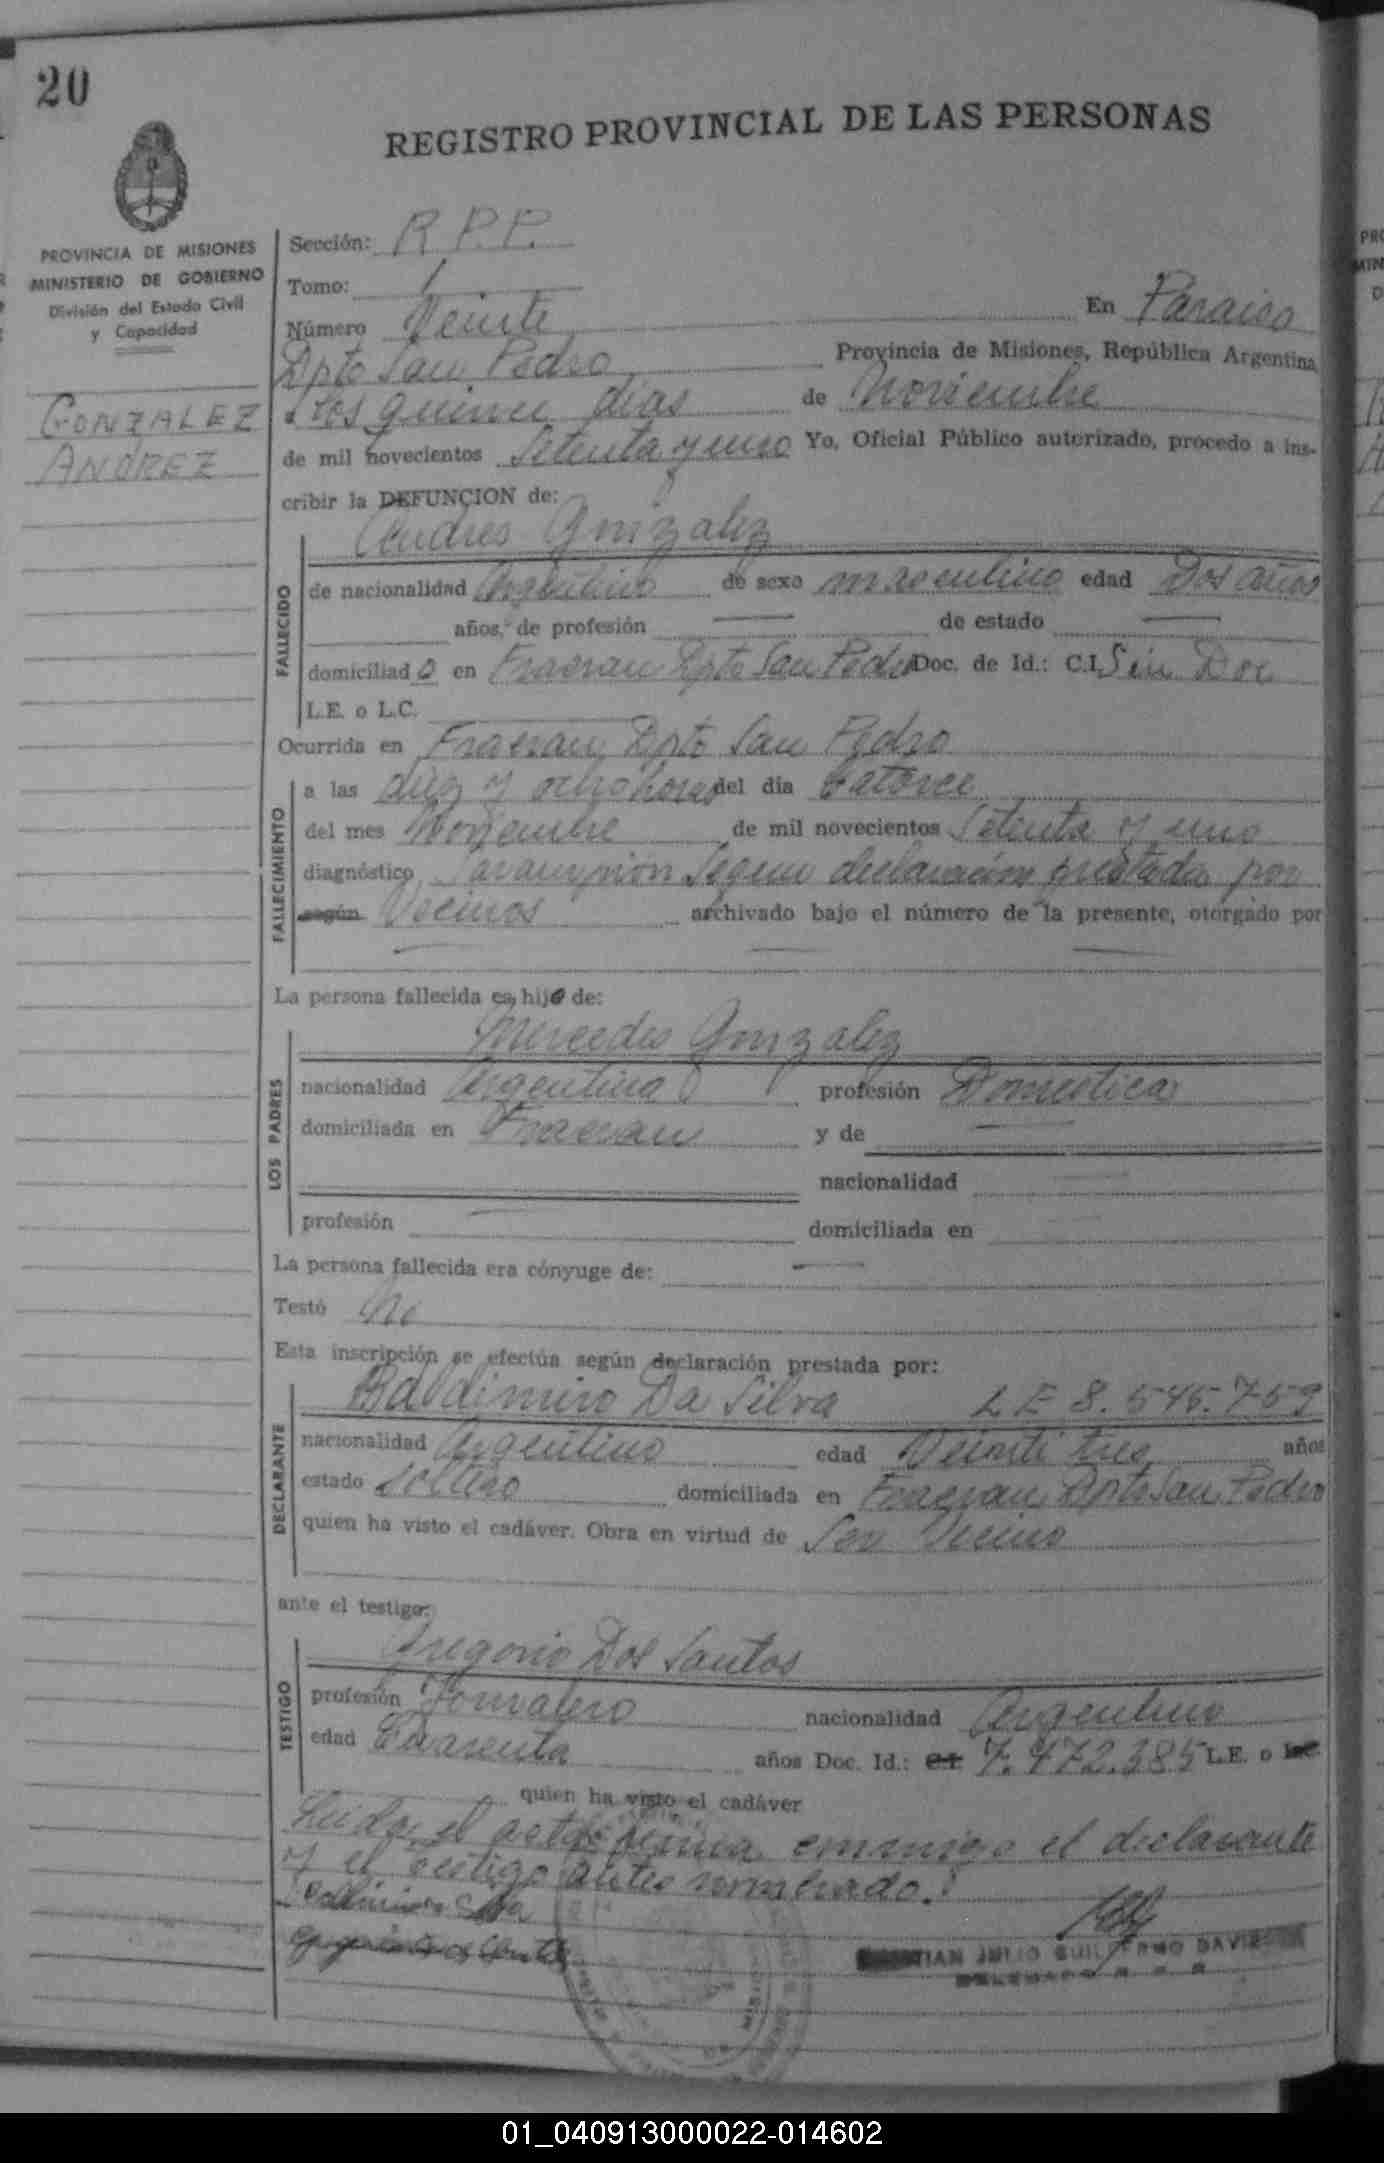 20
REGISTRO PROVINCIAL DE LAS PERSONAS
PROVINCIA DE MISIONES
MINISTERIO DE GOBIERNO
División del Estado Civil
y Capacidad
GONZALEZ
ANDREZ
Sección: R.P.P.
Tomo: 1
Número Veinte En Paraiso
Dpto San Pedro Provincia de Misiones, República Argentina
a los quince dias de Noviembre
de mil novecientos Setenta y uno Yo, Oficial Público autorizado, procedo a ins-
cribir la DEFUNCION de:
Andres Gonzalez
FALLECIDO
de nacionalidad Argentino de sexo masculino edad Dos años
años, de profesión — de estado —
domiciliado en Fracran Dpto San Pedro Doc. de Id.: C.I. Sin Doc
L.E. o L.C.
Ocurrida en Fracran Dpto San Pedro
FALLECIMIENTO
a las diez y ocho horas del dia catorce
del mes Noviembre de mil novecientos Setenta y uno
diagnóstico Sarampión Segun declaración prestada por
según Vecinos archivado bajo el número de la presente, otorgado por
— — —
La persona fallecida es, hijo de:
LOS PADRES
Mercedes Gonzalez
nacionalidad Argentina profesión Domestica
domiciliada en Fracran y de —
nacionalidad —
profesión — domiciliada en —
La persona fallecida era cónyuge de: —
Testó No
Esta inscripción se efectúa según declaración prestada por:
DECLARANTE
Baldimiro Da Silva L E 8.545.759
nacionalidad Argentino edad Veinti tres años
estado Soltero domiciliada en Fracran Dpto San Pedro
quien ha visto el cadáver. Obra en virtud de Ser Vecino
ante el testigo:
TESTIGO
Gregorio Dos Santos
profesión Jornalero nacionalidad Argentino
edad Cuarenta años Doc. Id.: C.I. 7.472.385 L.E. o L.C.
quien ha visto el cadáver
Leida el acta firma conmigo el declarante
y el testigo antes nombrado.
JULIO GUILLERMO
DELEGADO R. P. P.
01_040913000022-014602